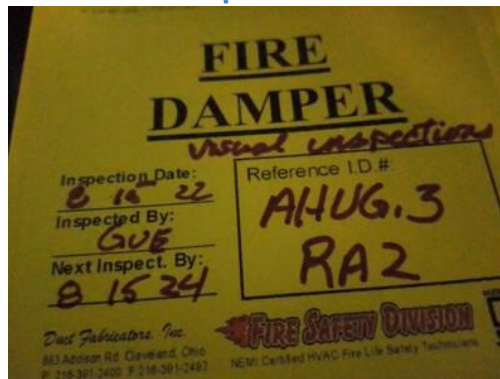 FIRE
DAMPER
visual inspections
Inspection Date:
8 16 22
Inspected By:
GUE
Next Inspect. By:
8 15 24
Reference I.D.#:
AHUG.3
RA2
Duct Fabricators, Inc.
883 Addison Rd. Cleveland, Ohio
P. 216-391-2400 F. 216-391-2493
FIRE SAFETY DIVISION
NEMI Certified HVAC Fire Life Safety Technicians